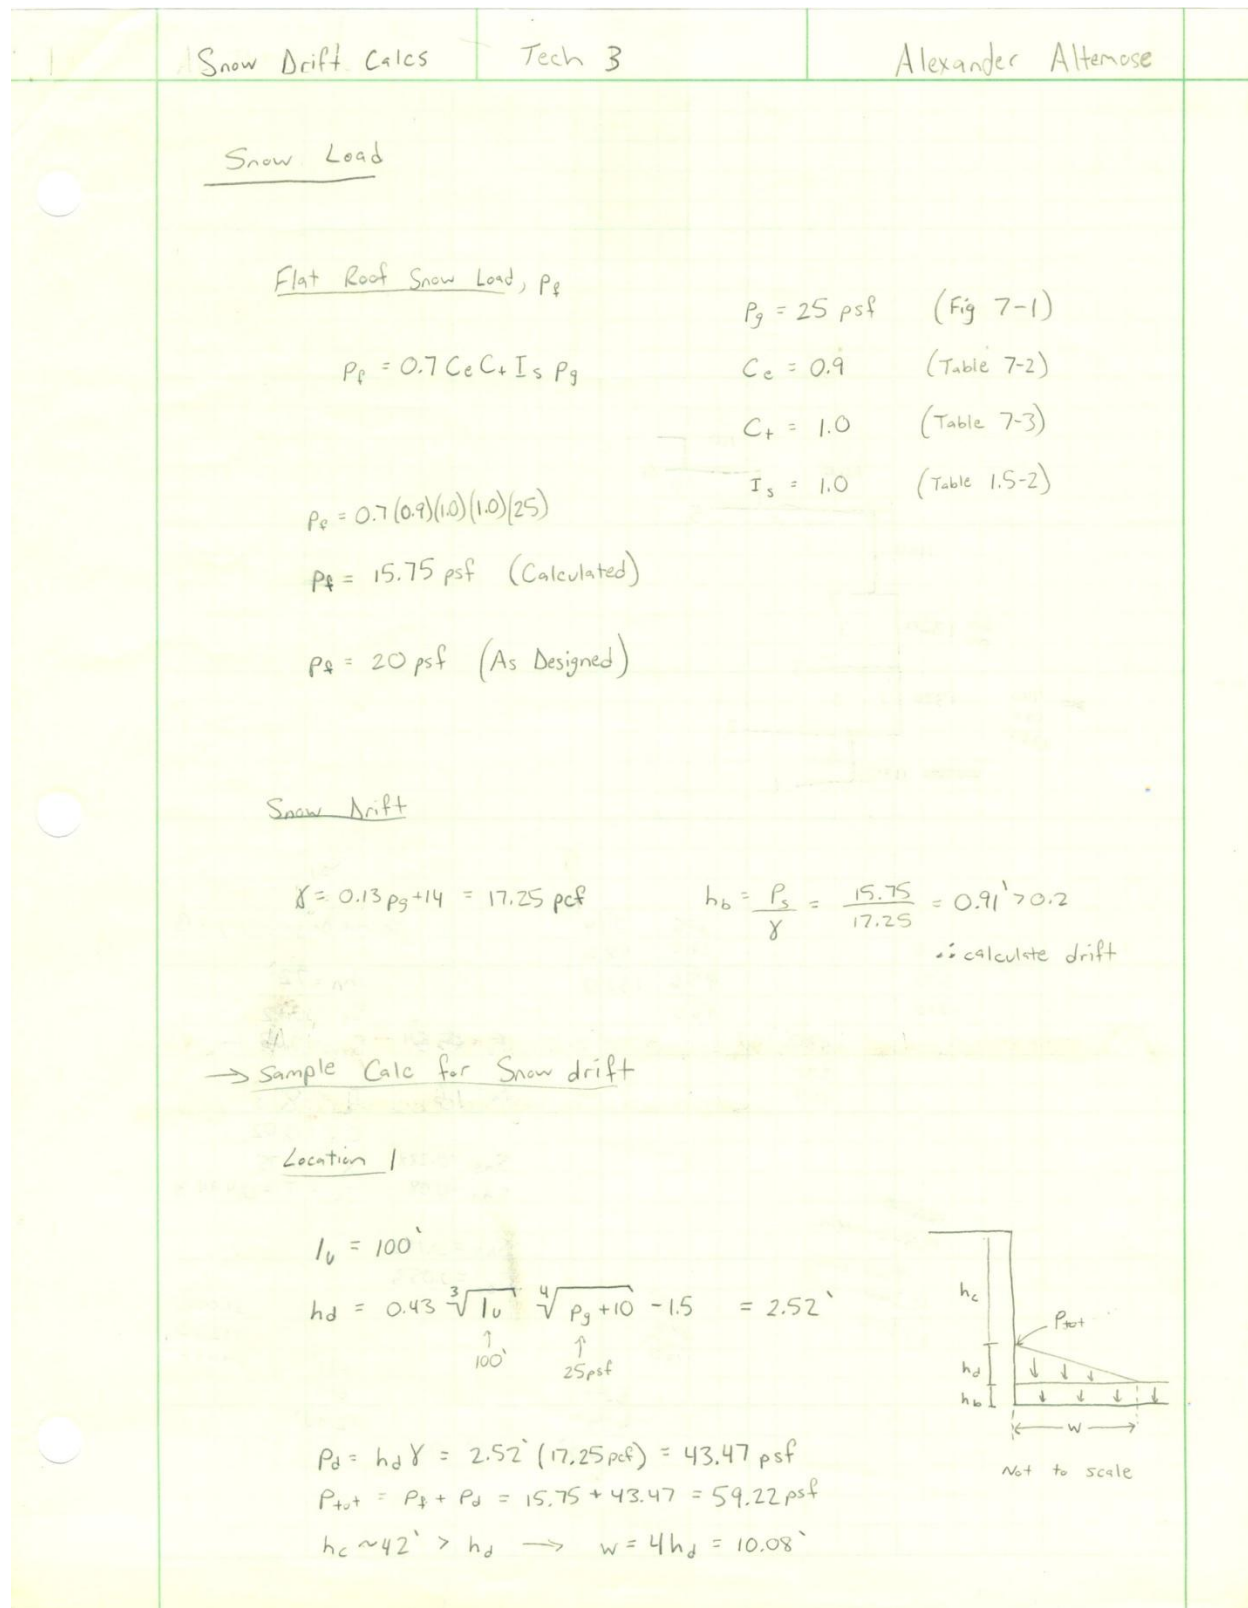 Snow Drift Calcs Tech 3 Alexander Altemose
Snow Load
Flat Roof Snow Load, Pf
Pg = 25 psf (Fig 7-1)
Pf = 0.7 Ce Ct Is Pg
Ce = 0.9 (Table 7-2)
Ct = 1.0 (Table 7-3)
Is = 1.0 (Table 1.5-2)
Pf = 0.7(0.9)(1.0)(1.0)(25)
Pf = 15.75 psf (Calculated)
Pf = 20 psf (As Designed)
Snow Drift
γ = 0.13 pg + 14 = 17.25 pcf
hb = Ps / γ = 15.75 / 17.25 = 0.91' > 0.2
∴ calculate drift
→ Sample Calc for Snow drift
Location 1
lu = 100'
hd = 0.43 ∛lu ∜(Pg + 10) - 1.5 = 2.52'
↑ ↑
100' 25psf
hc
Ptot
hd
hb
w
Not to scale
Pd = hd γ = 2.52' (17.25 pcf) = 43.47 psf
Ptot = Pf + Pd = 15.75 + 43.47 = 59.22 psf
hc ~ 42' > hd → w = 4hd = 10.08'